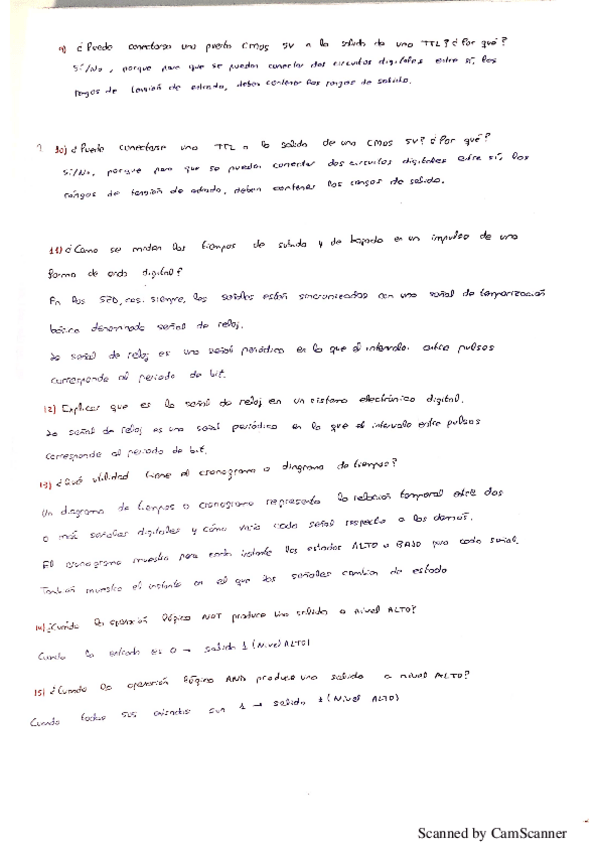 9) ¿Puede conectarse una puerta CMOS 5V a la salida de una TTL? ¿Por qué?
Sí/No, porque para que se puedan conectar dos circuitos digitales entre sí, los
rangos de tensión de entrada, deben contener los rangos de salida.
? 10) ¿Puede conectarse una TTL a la salida de una CMOS 5V? ¿Por qué?
Sí/No, porque para que se puedan conectar dos circuitos digitales entre sí, los
rangos de tensión de entrada, deben contener los rangos de salida.
11) ¿Cómo se miden los tiempos de subida y de bajada en un impulso de una
forma de onda digital?
En los SED, casi siempre, las señales están sincronizadas con una señal de temporización
básica denominada señal de reloj.
La señal de reloj es una señal periódica en la que el intervalo entre pulsos
corresponde al periodo de bit.
12) Explicar que es la señal de reloj en un sistema electrónico digital.
La señal de reloj es una señal periódica en la que el intervalo entre pulsos
corresponde al periodo de bit.
13) ¿Qué utilidad tiene el cronograma o diagrama de tiempos?
Un diagrama de tiempos o cronograma representa la relación temporal entre dos
o más señales digitales y cómo varía cada señal respecto a las demás.
El cronograma muestra para cada instante los estados ALTO o BAJO para cada señal.
También muestra el instante en el que las señales cambian de estado
14) ¿Cuándo la operación lógica NOT produce una salida a nivel ALTO?
Cuando la entrada es 0 → salida 1 (Nivel ALTO)
15) ¿Cuando la operación lógica AND produce una salida a nivel ALTO?
Cuando todas sus entradas son 1 → salida 1 (Nivel ALTO)
Scanned by CamScanner